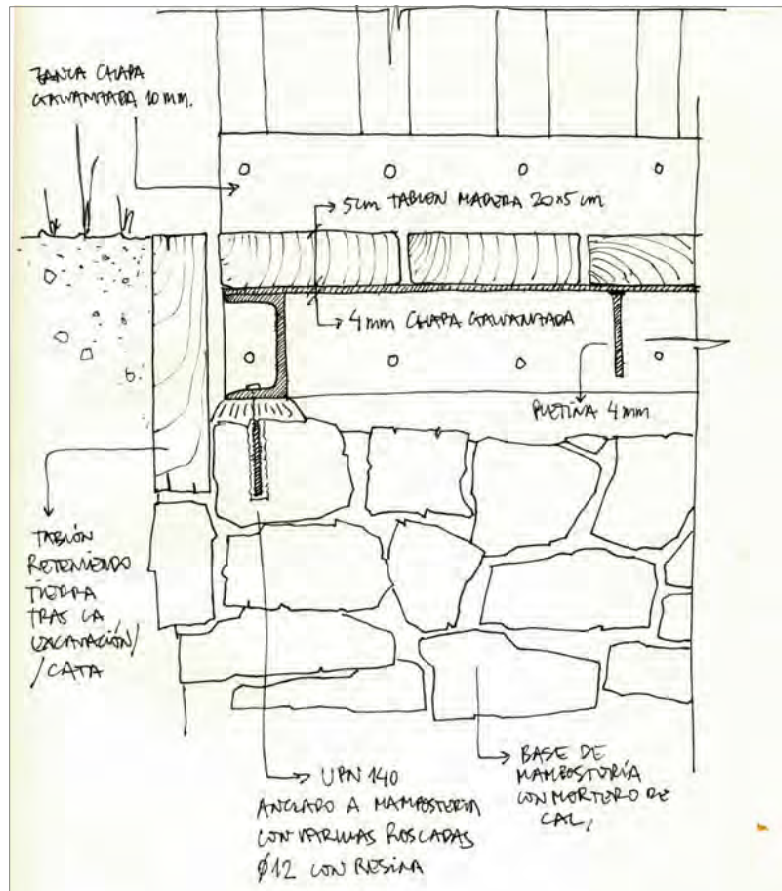 ZANCA CHAPA
GALVANIZADA 10 mm.
5cm TABLON MADERA 20x5 cm
4mm CHAPA GALVANIZADA
PLETINA 4mm
TABLÓN
RETENIENDO
TIERRA
TRAS LA
EXCAVACIÓN/
/CATA
UPN 140
ANCLADO A MAMPOSTERIA
CON VARILLAS ROSCADAS
Ø12 CON RESINA
BASE DE
MAMPOSTERÍA
CON MORTERO DE
CAL,